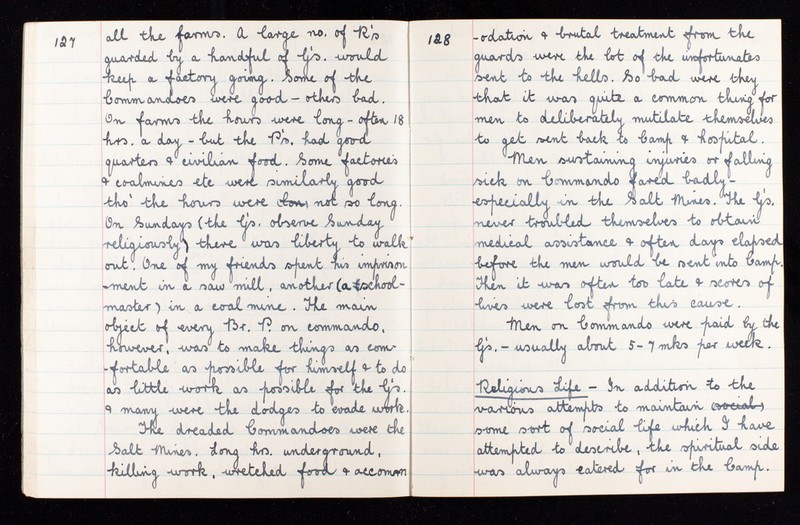 127
all the farms. A large no. of R's
guarded by a handful of G's. would
keep a factory going. Some of the
Commandoes were good - others bad.
On farms the hours were long - often 18
hrs. a day - but the P's. had good
quarters & civilian food. Some factories
& coalmines etc were similarly good
tho' the hours were not so long.
On Sundays (the G's. observe Sunday
religiously!) there was liberty to walk
out. One of my friends spent his imprison
-ment in a saw mill, another (a school-
master) in a coal mine. The main
object of every Br. P. on commando,
however, was to make things as com-
-fortable as possible for himself & to do
as little work as possible for the G's.
& many were the dodges to evade work.
The dreaded Commandoes were the
Salt Mines. Long hrs. underground,
killing work, wretched food & accomm
128
-odation & brutal treatment from the
guards were the lot of the unfortunates
sent to the hells. So bad were they
that it was quite a common thing for
men to deliberately mutilate themselves
to get sent back to Camp & hospital.
Men sustaining injuries or falling
sick on Commando fared badly -
especially in the Salt Mines. The G's.
never troubled themselves to obtain
medical assistance & often days elapsed
before the men would be sent into Camp.
Then it was often too late & scores of
lives were lost from this cause.
Men on Commando were paid by the
G's. - usually about 5-7 mks per week.
Religious Life - In addition to the
various attempts to maintain (social)
some sort of social life which I have
attempted to describe, the spiritual side
was always catered for in the Camp.